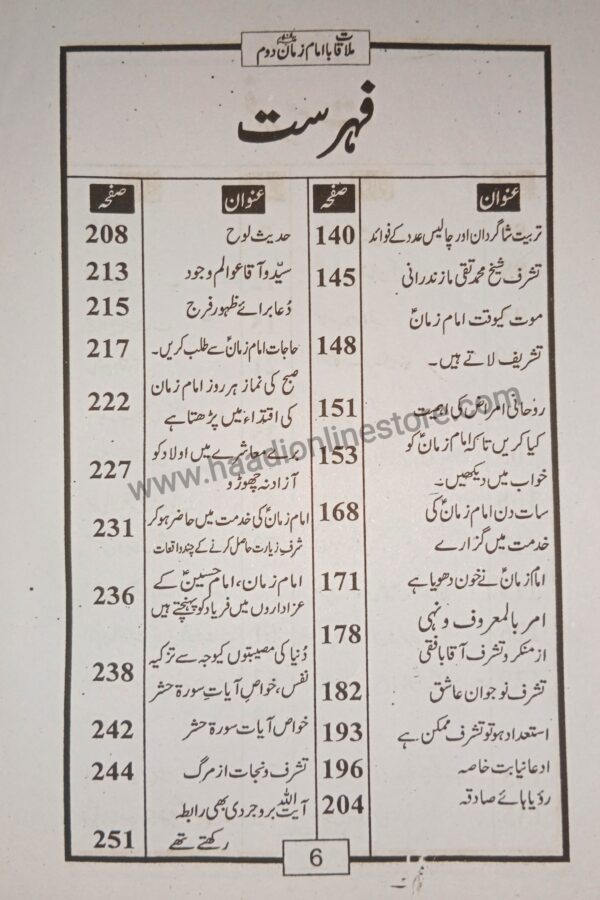 ملاقات با امام زمان دوم
فہرست
عنوان صفحہ
تربیت شاگردان اور چالیس عدد کے فوائد 140
تشرف شیخ محمد تقی مازندرانی 145
موت کیوقت امام زمانؑ
تشریف لاتے ہیں۔ 148
روحانی امراض کی اہمیت 151
کیا کریں تاکہ امام زمانؑ کو 153
خواب میں دیکھیں۔
سات دن امام زمانؑ کی 168
خدمت میں گزارے
امام زمانؑ نے خون دھویا ہے 171
امر بالمعروف و نہی 178
از منکر و تشرف آقا بافقی
تشرف نوجوان عاشق 182
استعداد ہو تو تشرف ممکن ہے 193
ادعا نیابت خاصہ 196
رؤیا ہائے صادقہ 204
عنوان صفحہ
حدیث لوح 208
سیّد و آقا عوالم وجود 213
دُعا برائے ظہور فرج 215
حاجات امام زمانؑ سے طلب کریں۔ 217
صبح کی نماز ہر روز امام زمان 222
کی اقتداء میں پڑھتا ہے
برے معاشرے میں اولاد کو 227
آزاد نہ چھوڑو
امام زمانؑ کی خدمت میں حاضر ہو کر 231
شرف زیارت حاصل کرنے کے چند واقعات
امام زمان، امام حسینؑ کے 236
عزاداروں میں فریاد کو پہنچتے ہیں
دُنیا کی مصیبتوں کیوجہ سے تزکیہ 238
نفس، خواصِ آیاتِ سورۃ حشر
خواص آیات سورۃ حشر 242
تشرف و نجات از مرگ 244
آیت اللہ بروجردی بھی رابطہ
رکھتے تھے 251
6
www.haadionlinestore.com